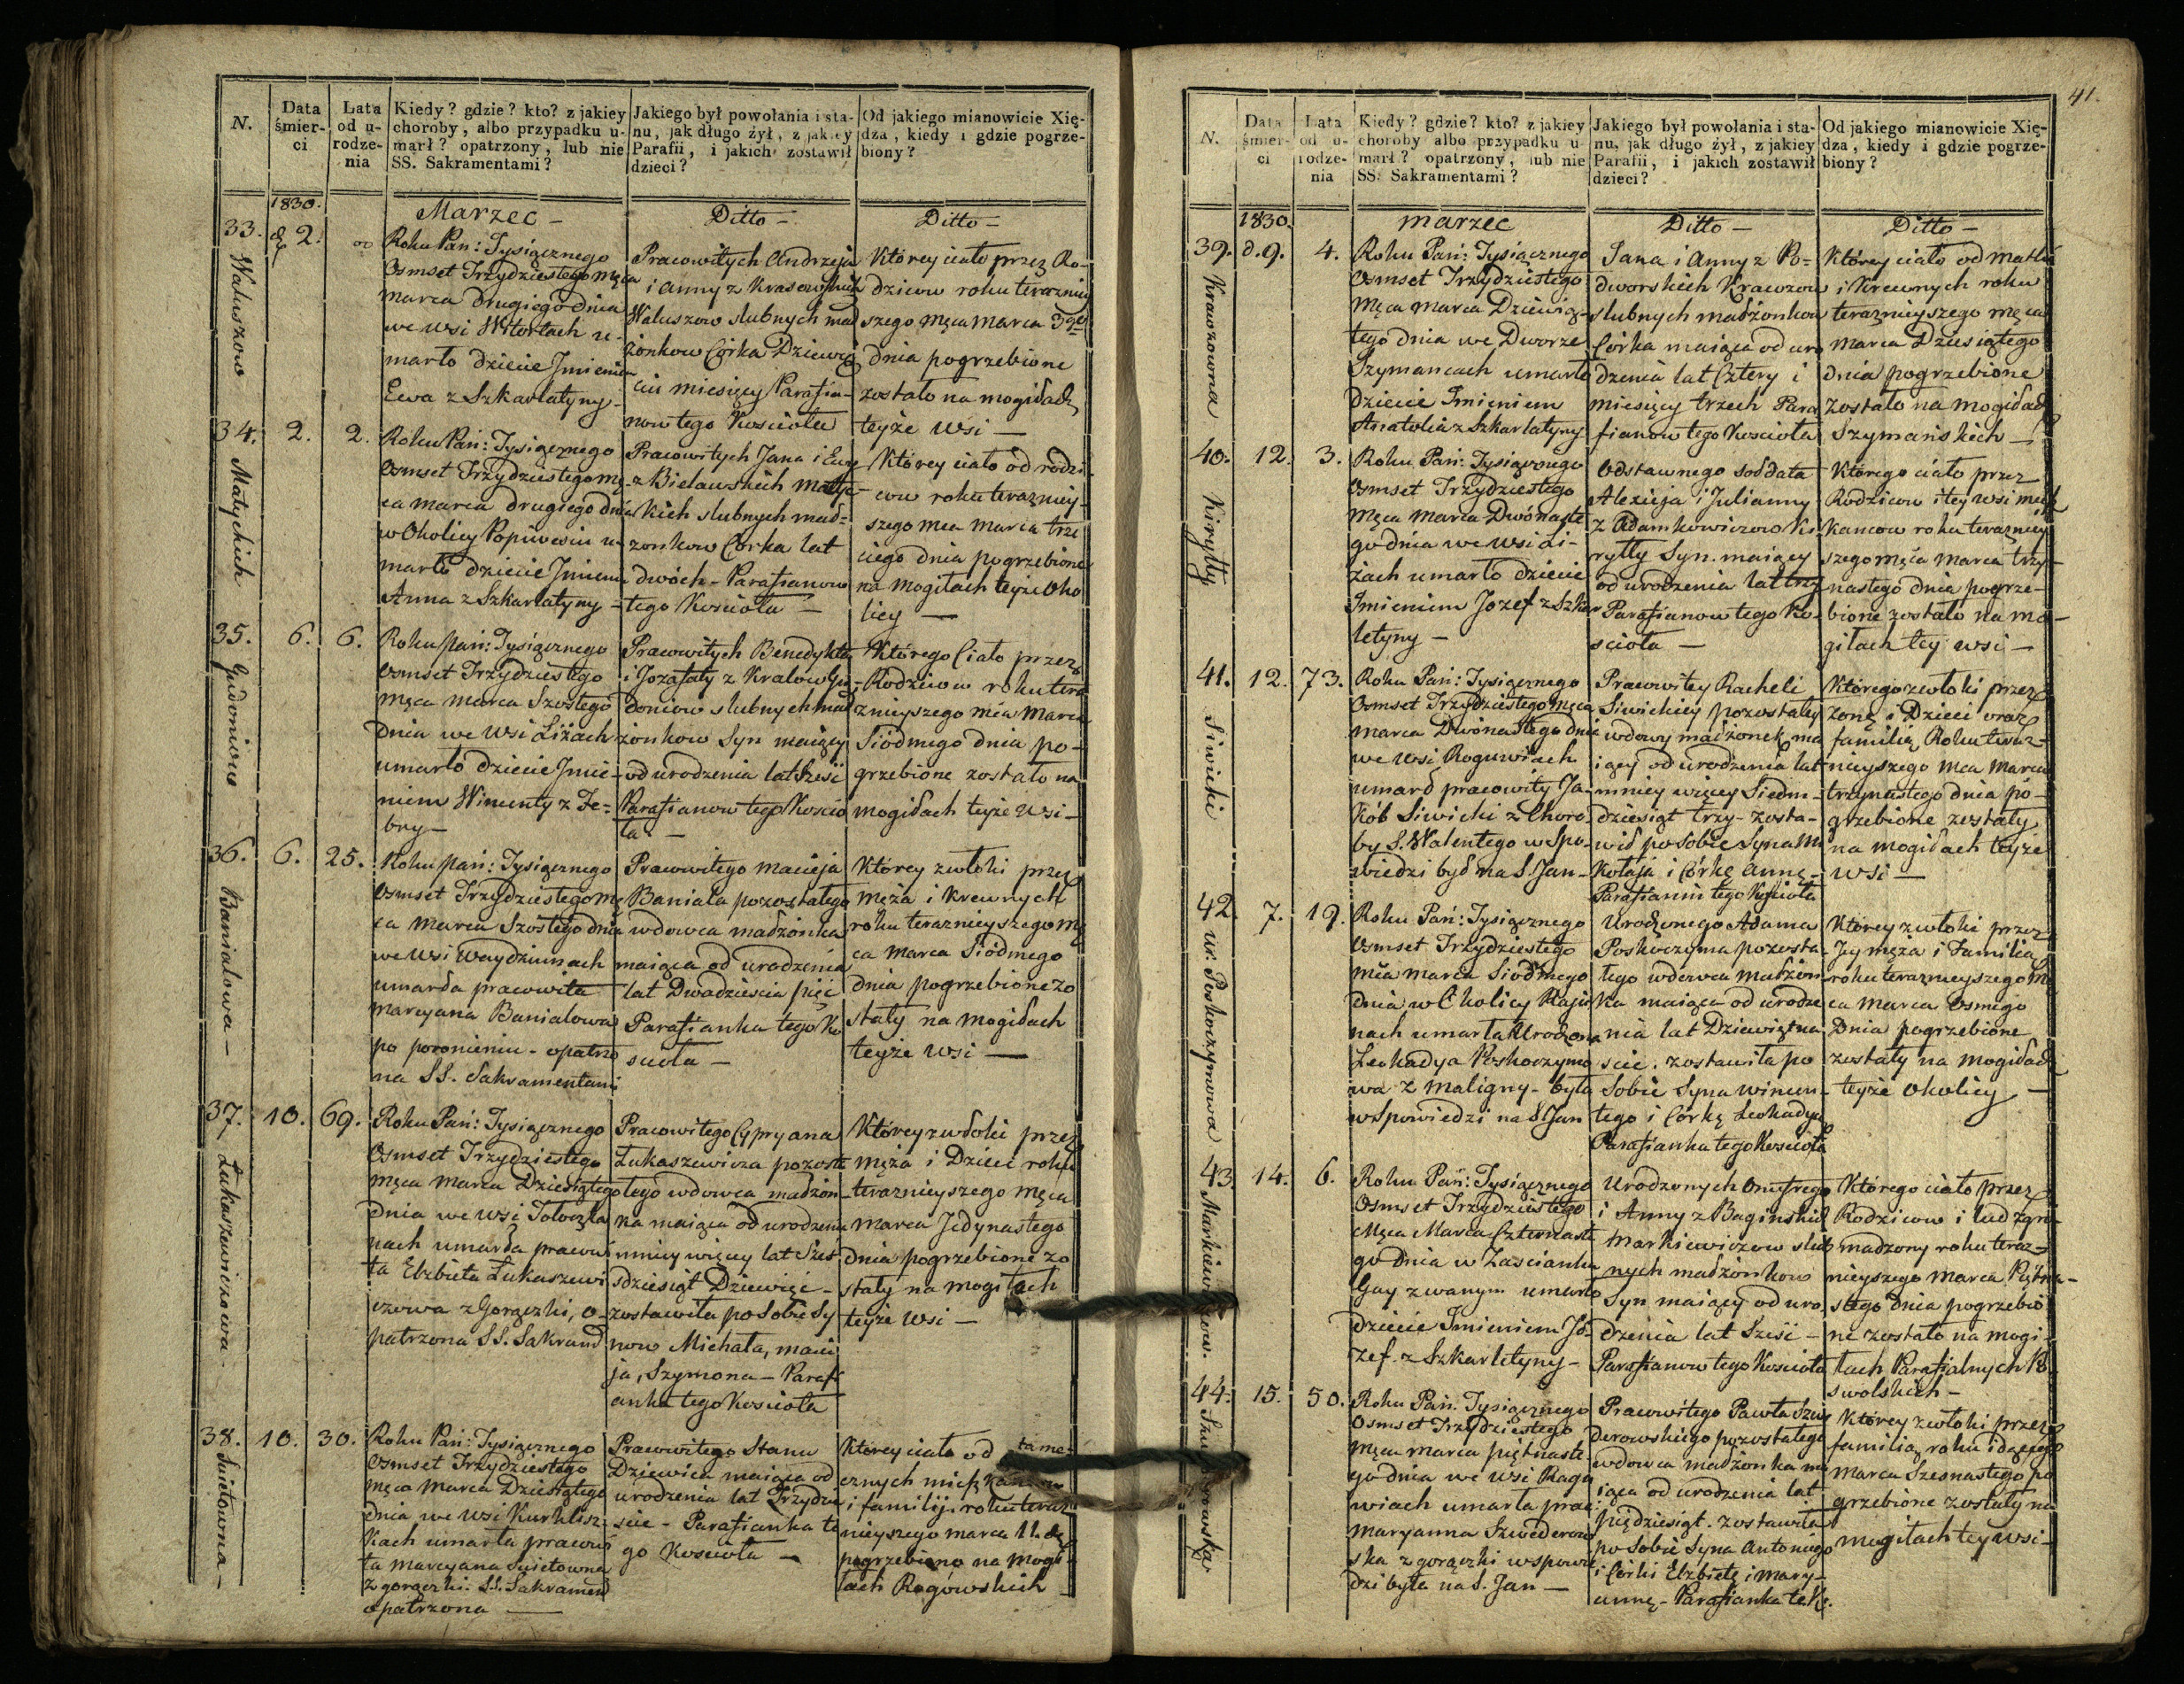 N.
Data śmier-ci
Lata od u-rodze-nia
Kiedy? gdzie? kto? z jakiey
choroby, albo przypadku u-
marł? opatrzony, lub nie
SS. Sakramentami?
Jakiego był powołania i sta-
nu, jak długo żył, z jakiey
Parafii, i jakich zostawił
dzieci?
Od jakiego mianowicie Xię-
dza, kiedy i gdzie pogrze-
biony?
1830.
Marzec —
Ditto —
Ditto —
33.
Waluszow
2.
Roku Pań: Tysiącznego
Osmset Trzydziestego męca
marca drugiego dnia
we wsi Wtortach u-
marło dziecie Imieniem
Ewa z Szkarlatyny-
Pracowitych Andrzeja
i Anny z Krasowskich
Waluszow slubnych mał
żonkow Córka Dziewię
ciu miesięcy Parafia-
now tego Kościoła
Którey ciało przez Ro-
dzicow roku teraźniey
szego męca marca 3go
dnia pogrzebione
zostało na mogiłach
teyże wsi —
34.
Małyckich
2.
2.
Roku Pań: Tysiącznego
Osmset Trzydziestego mę-
ca marca drugiego dnia
w Okolicy Popiwciu u-
marło dziecie Imieniem
Anna z Szkarlatyny -
Pracowitych Jana i Ewy
z Bielawskich Małyc-
kich slubnych mał-
żonkow Córka lat
dwóch - Parafianow
tego Kościoła —
Którey ciało od rodzi
cow roku teraźniey-
szego mca marca trze
ciego dnia pogrzebione
na mogiłach teyże Oko
licy —
35.
Gudoniow
6.
6.
Roku Pań: Tysiącznego
Osmset Trzydziestego
męca marca Szostego
dnia we wsi Liżach
umarło dziecie Imie-
niem Wincenty z Fe-
bry —
Pracowitych Benedykta
i Jozafaty z Kralow Gu-
doniow slubnych mał
żonkow Syn maiący
od urodzenia lat Sześć
Parafianow tego Kościo
ła —
Którego Ciało przez
Rodzicow roku tera
znieyszego mca Marca
Siódmego dnia po-
grzebione zostało na
mogiłach teyże wsi —
36.
Banialowa —
6.
25.
Roku Pań: Tysiącznego
Osmset Trzydziestego mę
ca Marca Szostego dnia
we wsi Woydziunach
umarła pracowita
Maryana Banialowa
po poronieniu - opatrzo
na SS. Sakramentami
Pracowitego Macieja
Baniala pozostałego
wdowca małżonka
maiąca od urodzenia
lat Dwadzieścia pięć
Parafianka tego Ko
ścioła —
Którey zwłoki przez
męża i krewnych
roku teraznieyszego mę
ca marca Siódmego
dnia pogrzebione zo
stały na mogiłach
teyże wsi —
37.
Łukaszewiczowa -
10.
69.
Roku Pań: Tysiącznego
Osmset Trzydziestego
męca marca Dziesiątego
dnia we wsi Toloczka
nach umarła pracowi
ta Elżbieta Łukaszewi
czowa z Gorączki, o-
patrzona SS. Sakrament
Pracowitego Cypryana
Łukaszewicza pozosta
łego wdowca małżon
ka maiąca od urodzenia
mniey więcey lat Sześ
dziesiąt Dziewięć -
zostawiła po sobie Sy
now Michała, maci
ja, Szymona — Parafi
anka tego Kościoła
Którey zwłoki przez
męża i Dzieci roku
teraznieyszego męca
marca Jedynastego
dnia pogrzebione zo
stały na mogiłach
teyże wsi —
38.
Swietowna —
10.
30.
Roku Pań: Tysiącznego
Osmset Trzydziestego
męca Marca Dziesiątego
dnia we wsi Kurklisz-
kach umarła pracowi
ta Maryana Swietowna
z gorączki. SS. Sakrament
opatrzona —
Pracowitego Stanu
Dziewica maiąca od
urodzenia lat Trzydzie
ście - Parafianka te
go Kościoła —
Którey ciało od tame-
cznych mieszkańcow
i familij roku teraz
nieyszego marca 11. d.
pogrzebiono na mogi
łach Rogówskich
41.
N.
Data śmier-ci
Lata od u-rodze-nia
Kiedy? gdzie? kto? z jakiey
choroby albo przypadku u-
marł? opatrzony, lub nie
SS. Sakramentami?
Jakiego był powołania i sta-
nu, jak długo żył, z jakiey
Parafii, i jakich zostawił
dzieci?
Od jakiego mianowicie Xię-
dza, kiedy i gdzie pogrze-
biony?
1830.
marzec
Ditto —
Ditto —
39.
Krawzowna
d. 9.
4.
Roku Pań: Tysiącznego
Osmset Trzydziestego
męca marca Dziewią-
tego dnia we Dworze
Szymancach umarło
dziecie Imieniem
Anatolia z Szkarlatyny
Jana i Anny z Po-
dworskich Krawzow
slubnych małżonkow
Córka maiąca od uro
dzenia lat Cztery i
miesięcy trzech Para
fianow tego Kościoła
Którey ciało od matki
i Krewnych roku
teraznieyszego męca
marca Dziesiątego
dnia pogrzebione
zostało na mogiłach
Szymańskich —
40.
Kiryłły
12.
3.
Roku Pań: Tysiącznego
Osmset Trzydziestego
męca Marca Dwónaste
go dnia we wsi Li-
żach umarło dziecie
Imieniem Jozef z Szkar
letyny —
Odstawnego Sołdata
Alexieja i Julianny
z Adamkowiczow Ki-
ryłły Syn. maiący
od urodzenia lat trzy
Parafianow tego Ko-
ścioła —
Którego ciało przez
Rodzicow i tey wsi miesz
kancow roku terazniey
szego męca marca trzy-
nastego dnia pogrze-
bione zostało na mo-
giłach tey wsi —
41.
Siwicki
12.
73.
Roku Pań: Tysiącznego
Osmset Trzydziestego męca
marca Dwónastego dnia
we wsi Roguwiach
umarł pracowity Ja-
kób Siwicki z Choro-
by S. Walentego w Spo-
wiedzi był na S. Jan -
Pracowitey Racheli
Siwickiey pozostałey
wdowy małżonek ma
iący od urodzenia lat
mniey więcey Siedm-
dziesiąt trzy - zosta-
wił po sobie Syna Mi
kołaja i Córkę Annę -
Parafianin tego Kościoła
Którego zwłoki przez
żonę i Dzieci oraz
familią Roku teraz-
nieyszego mca Marca
trzynastego dnia po-
grzebione zostały
na mogiłach teyże
wsi —
42.
ur. Poskoczymowa
7.
19.
Roku Pań: Tysiącznego
Osmset Trzydziestego
mca marca Siódmego
dnia w Okolicy Raju
nach umarła Urodzona
Leokadya Poskoczymo
wa z maligny - była
w Spowiedzi na S. Jan
Urodzonego Adama
Poskoczyma pozosta-
łego wdowca małżon
ka maiąca od urodze
nia lat Dziewiętna
ście. zostawiła po
sobie Syna Wincen-
tego i Córkę Leokadyę
Parafianka tego Kościoła
Którey zwłoki przez
Jey męża i Familią
roku teraznieyszego mę
ca marca Osmego
Dnia pogrzebione
zostały na mogiłach
teyże okolicy —
43.
Markiewiczow.
14.
6.
Roku Pań: Tysiącznego
Osmset Trzydziestego
Męca Marca Czternaste
go dnia w Zascianku
Gay zwanym umarło
dziecie Imieniem Jó-
zef. z Szkarletyny -
Urodzonych Onufrego
i Anny z Baginskich
Markiewiczow slub
nych małżonkow
Syn maiący od uro
dzenia lat Sześć -
Parafianow tego Kościoła
Którego ciało przez
Rodzicow i lud zgro
madzony roku teraz-
nieyszego marca Piętna-
stego dnia pogrzebio
ne zostało na mogi-
łach Parafialnych Po
swolskich —
44.
15.
50.
Roku Pań: Tysiącznego
Osmset Trzydziestego
męca marca piętnaste
go dnia we wsi Raga
wiach umarła prac:
Maryanna Szwederow
ska z gorączki w spowie
dzi była na S. Jan —
Pracowitego Pawła Szwe
derowskiego pozostałego
wdowca małżonka ma
iąca od urodzenia lat
pięćdziesiąt. zostawiła
po sobie Syna Antoniego
i Córki Elżbietę i Mary-
annę - Parafianka te. K.
Którey zwłoki przez
familią roku idącego
marca Szesnastego po
grzebione zostały na
mogiłach tey wsi —